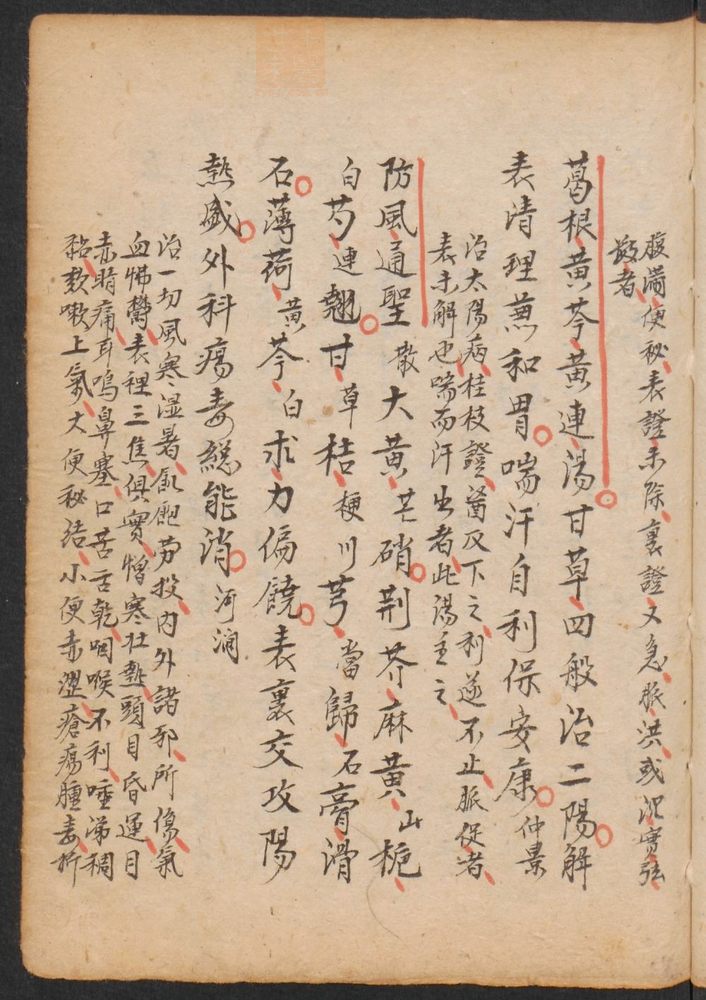 腹滿便秘表證未除裏證又急脈洪或沉實弦
數者
葛根黃芩黃連湯甘草四般治二陽解
表清理兼和胃喘汗自利保安康仲景
治太陽病桂枝證醫反下之利遂不止脈促者
表未解也喘而汗出者此湯主之
防風通聖散大黃芒硝荆芥麻黃山梔
白芍連翹甘草桔梗川芎當歸石膏滑
石薄荷黃芩白朮力偏饒表裏交攻陽
熱盛外科瘍毒總能消河澗
治一切風寒濕暑飢飽勞役內外諸邪所傷氣
血怫鬱表裡三焦俱實憎寒壯熱頭目昏運目
赤睛痛耳鳴鼻塞口苦舌乾咽喉不利唾涕稠
黏欬嗽上氣大便秘結小便赤澀瘡瘍腫毒折